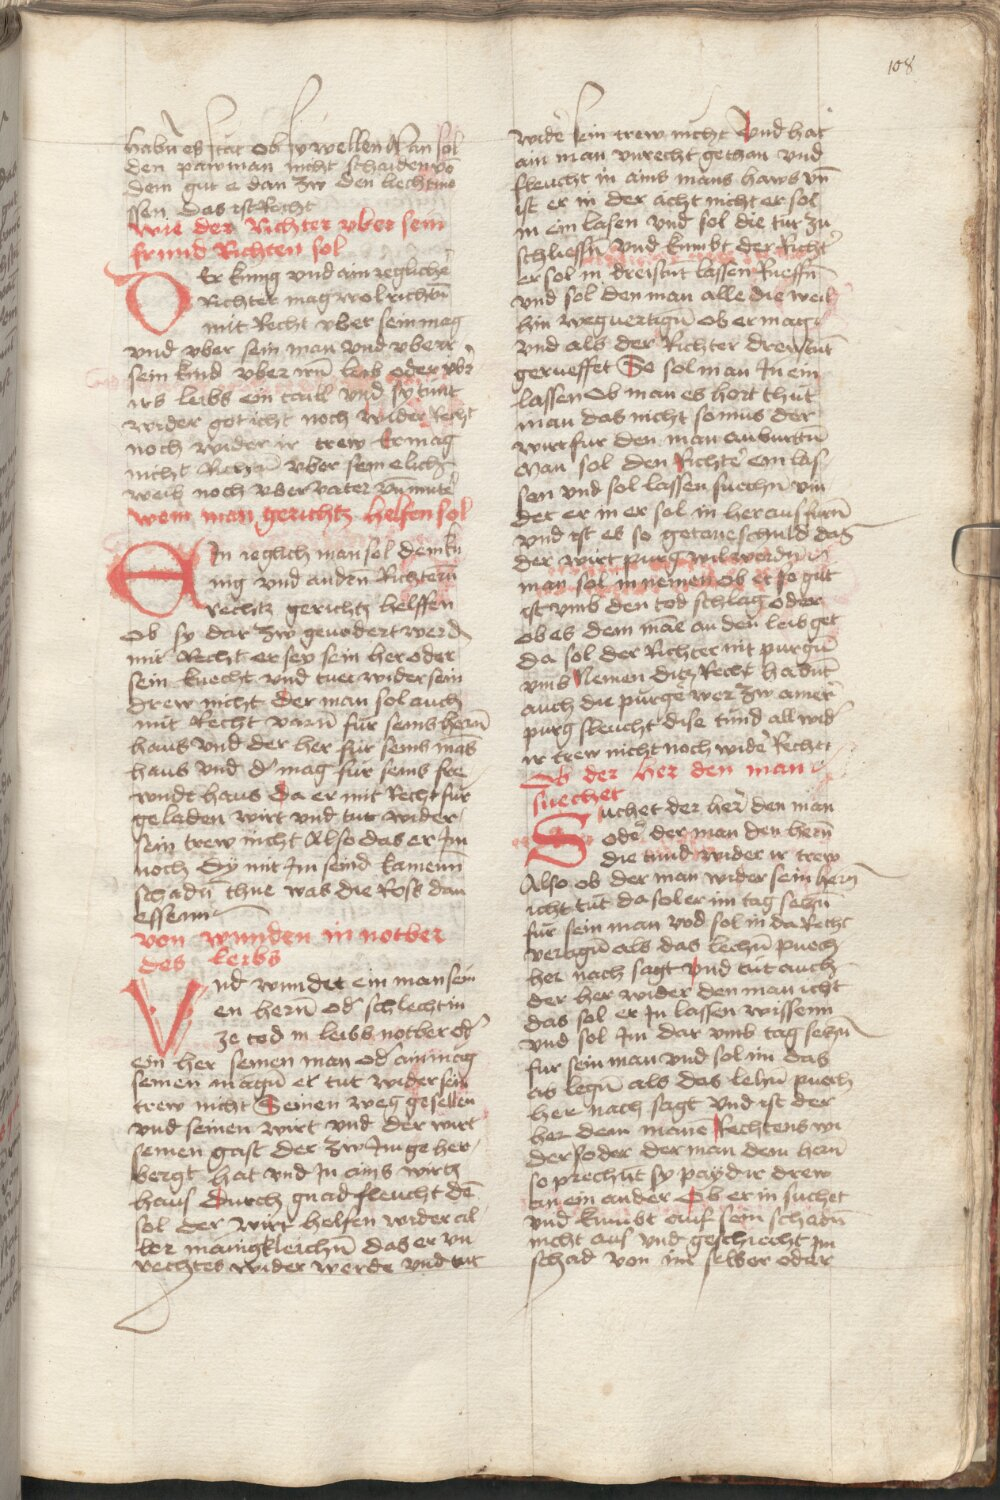 108
habn es stat ob sy wellen Man sol
den pawman nicht schaiden vō
dem gut e dan zw den liechtmo
ssen das ist Recht
Wie der Richter vber sein
frund Richten sol
Der kunig vnd ain yeglicher
Richter mag wol richtn̄
mit Recht vber sein mag
vnd vber sein man vnd vber
sein kind vber irn̄ leib oder vbr̄
irs leibs ein tail vnd sy tunt
wider got icht noch wider Recht
noch wider ir trew Er mag
nicht Richtn̄ vber sein elich
weib noch vber vater vnd muter
wem man gerichtz helfen sol
Ein yeglich man sol dem ku
nig vnd andern̄ Richtern̄
rechtz gerichtz helffen
Ob sy dar zw geuodert werd
mit Recht er sey sein her oder
sein knecht vnd tuet wider sein
drew nicht der man sol auch
mit Recht varn̄ fur seins hern̄
haus vnd der her fur seins mās
haus vnd d' mag fur seins fre
wndt haus Da er mit Recht fur
geladen wirt vnd tut wider
sein trew nicht Also das er Im
noch dy mit Im seind kainenn
schadn̄ thue was die Ross dan
essenn
von wunden in notber
des leibs
Vnd wundet ein man sein
en hern̄ od' schlecht in
ze tod in leibs notber od'
ein her seinen man od' ain mag
seinen magn̄ er tut wider sein
trew nicht Seinen weg gesellen
vnd seinen wirt vnd der wirt
seinen gast der zw Im ge her
bergt hat vnd In ains wirtz
haus durch gnad fleucht dē
sol der wirt helfen wider al
ler mānigkleichn̄ das er vn
rechtes wider werde vnd tut
wider sein trew nicht Vnd hat
ain man vnrecht gethan vnd
fleucht in ains mans haws vn̄
ist er in der acht nicht er sol
in ein lasen vnd sol die tur zu
schliessn̄ Vnd kumbt der Richt'
er sol in dreistut lassen Rueffn̄
vnd sol den man alle die weil
hin weg uertign̄ ob er mag
vnd als der Richter dreystut
gerueffet So sol man In ein
lassen Ob man es hort thut
man das nicht so mus der
wirt fur den man antwurtn̄
Man sol den Richter ein las
sen vnd sol lassen suechn̄ vin
det er in er sol in heraus furn̄
vnd ist es so getane schuld das
der wirt purg wil werdn̄
man sol in nemen ob es so gut
ist vmb den tod schlag oder
ob es dem mā an den leib get
da sol der Richter nit purgn̄
vmb Nemen ditz Recht habnt
auch die purge wer zw ainer
purg fleucht dise tund all wid'
ir trew nicht noch wider Recht
Ob der her den man
suechet
Suchet der her den man
oder der man den hern̄
die tund wider ir trew
Also ob der man wider sein hern̄
icht tut da sol er im tag setzn̄
fur sein man vnd sol in da Recht
vertagn̄ als das lechn̄ puech
her nach sagt Vnd tut auch
der her wider den man icht
das sol er In lassen wissenn
vnd sol Im dar vmb tag setzn̄
fur sein man vnd sol im das
as legn̄ als das lehn̄ puech
her nach sagt Vnd ist der
her dem mane Rechtens wi
der so der der man dem hern̄
so prechnt sy payd ir drew
an ein ander Ob er in suchet
vnd kumbt auf sein schadn̄
nicht aus vnd geschiecht im
schad von im selber oder